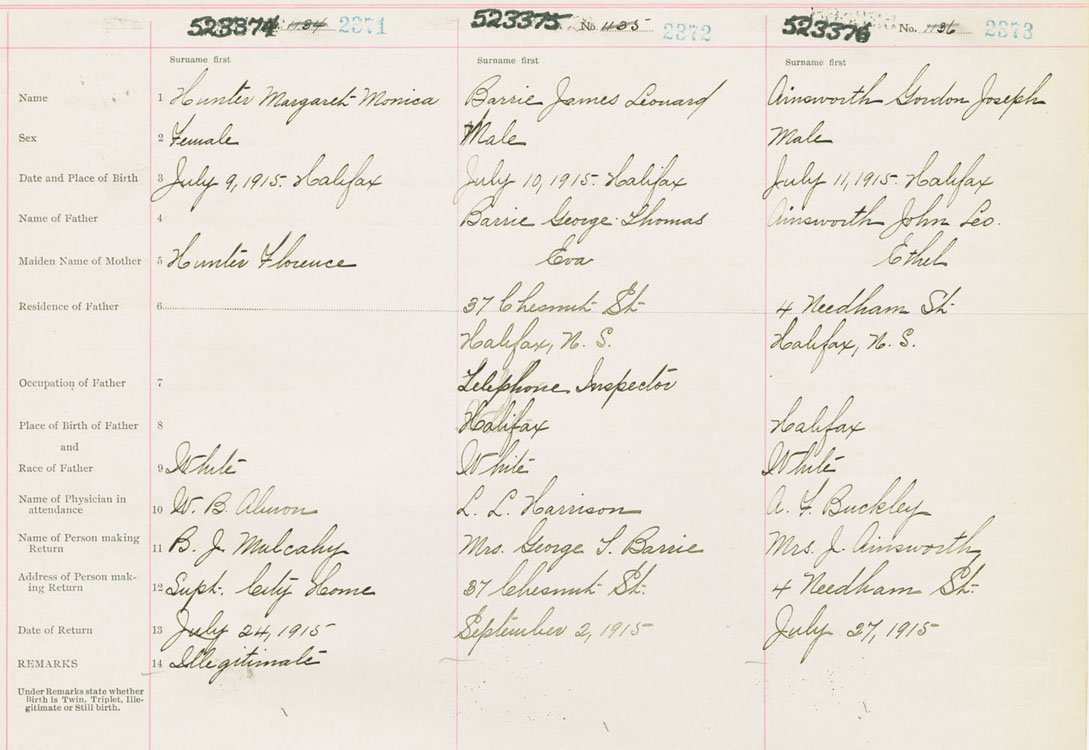 523374 1134 2371 523375 No. 1135 2372 523376 No. 1136 2373
Surname first Surname first Surname first
Name 1 Hunter Margaret Monica Barrie James Leonard Ainsworth Gordon Joseph
Sex 2 Female Male Male
Date and Place of Birth 3 July 9, 1915. Halifax July 10, 1915. Halifax July 11, 1915. Halifax
Name of Father 4 Barrie George Thomas Ainsworth John Leo.
Maiden Name of Mother 5 Hunter Florence Eva Ethel
Residence of Father 6 37 Chesnut St. 4 Needham St.
Halifax, N. S. Halifax, N. S.
Occupation of Father 7 Telephone Inspector
Place of Birth of Father 8 Halifax Halifax
and
Race of Father 9 White White White
Name of Physician in
attendance 10 W. B. Almon L. L. Harrison A. F. Buckley
Name of Person making
Return 11 B. J. Mulcahy Mrs. George T. Barrie Mrs. J. Ainsworth
Address of Person mak-
ing Return 12 Supt. City Home 37 Chesnut St. 4 Needham St.
Date of Return 13 July 24, 1915 September 2, 1915 July 27, 1915
REMARKS 14 Illegitimate
Under Remarks state whether
Birth is Twin, Triplet, Ille-
gitimate or Still birth.